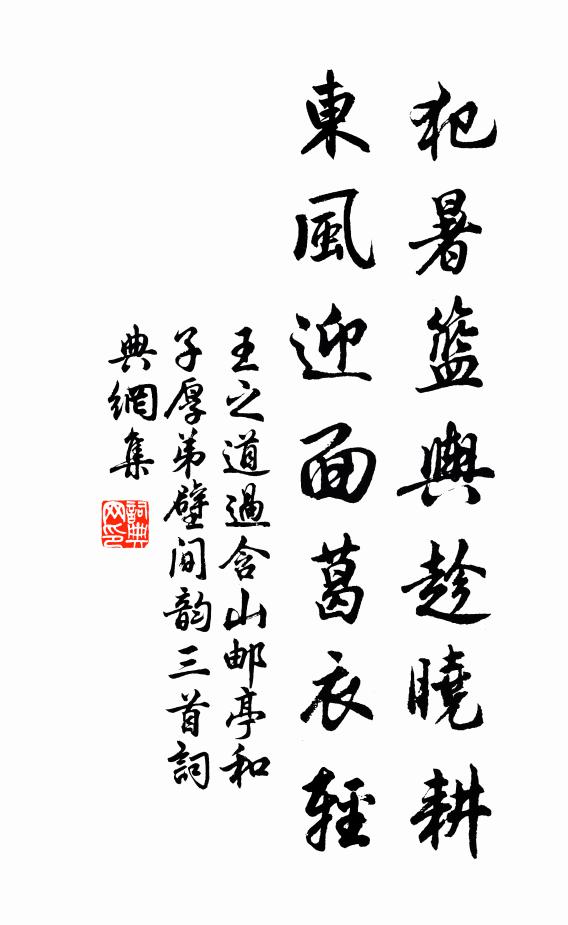 犯暑籃輿趁曉耕
東風迎面葛衣輕
王之道過含山邮亭和
子厚弟壁间韵三首詞
典網集
詞典网印